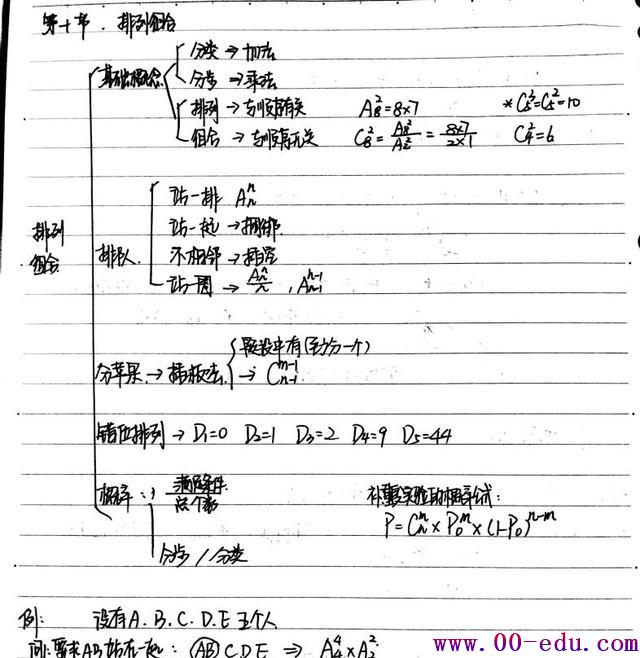 第十节. 排列组合
排列组合
基础概念
分类 → 加法
分步 → 乘法
排列 → 与顺序有关 A₈²=8×7 *C₅³=C₅²=10
组合 → 与顺序无关 C₈²=A₈²/A₂²=8×7/2×1 C₄²=6
排队
站一排 Aₙⁿ
站一起 → 捆绑
不相邻 → 插空
站一圈 → Aₙⁿ/n , Aₙ₋₁ⁿ⁻¹
分苹果 → 插板法
(至少分一个)
→ Cₙ₋₁ᵐ⁻¹
错位排列 → D₁=0 D₂=1 D₃=2 D₄=9 D₅=44
概率 : 满足条件/总个数
分步 / 分类
补重实验的概率公式:
P=Cₙᵐ×P₀ᵐ×(1-P₀)ⁿ⁻ᵐ
例: 设有A.B.C.D.E 五个人
问:要求AB站在一起: (AB) C D E ⇒ A₄⁴×A₂²
www.00-edu.com